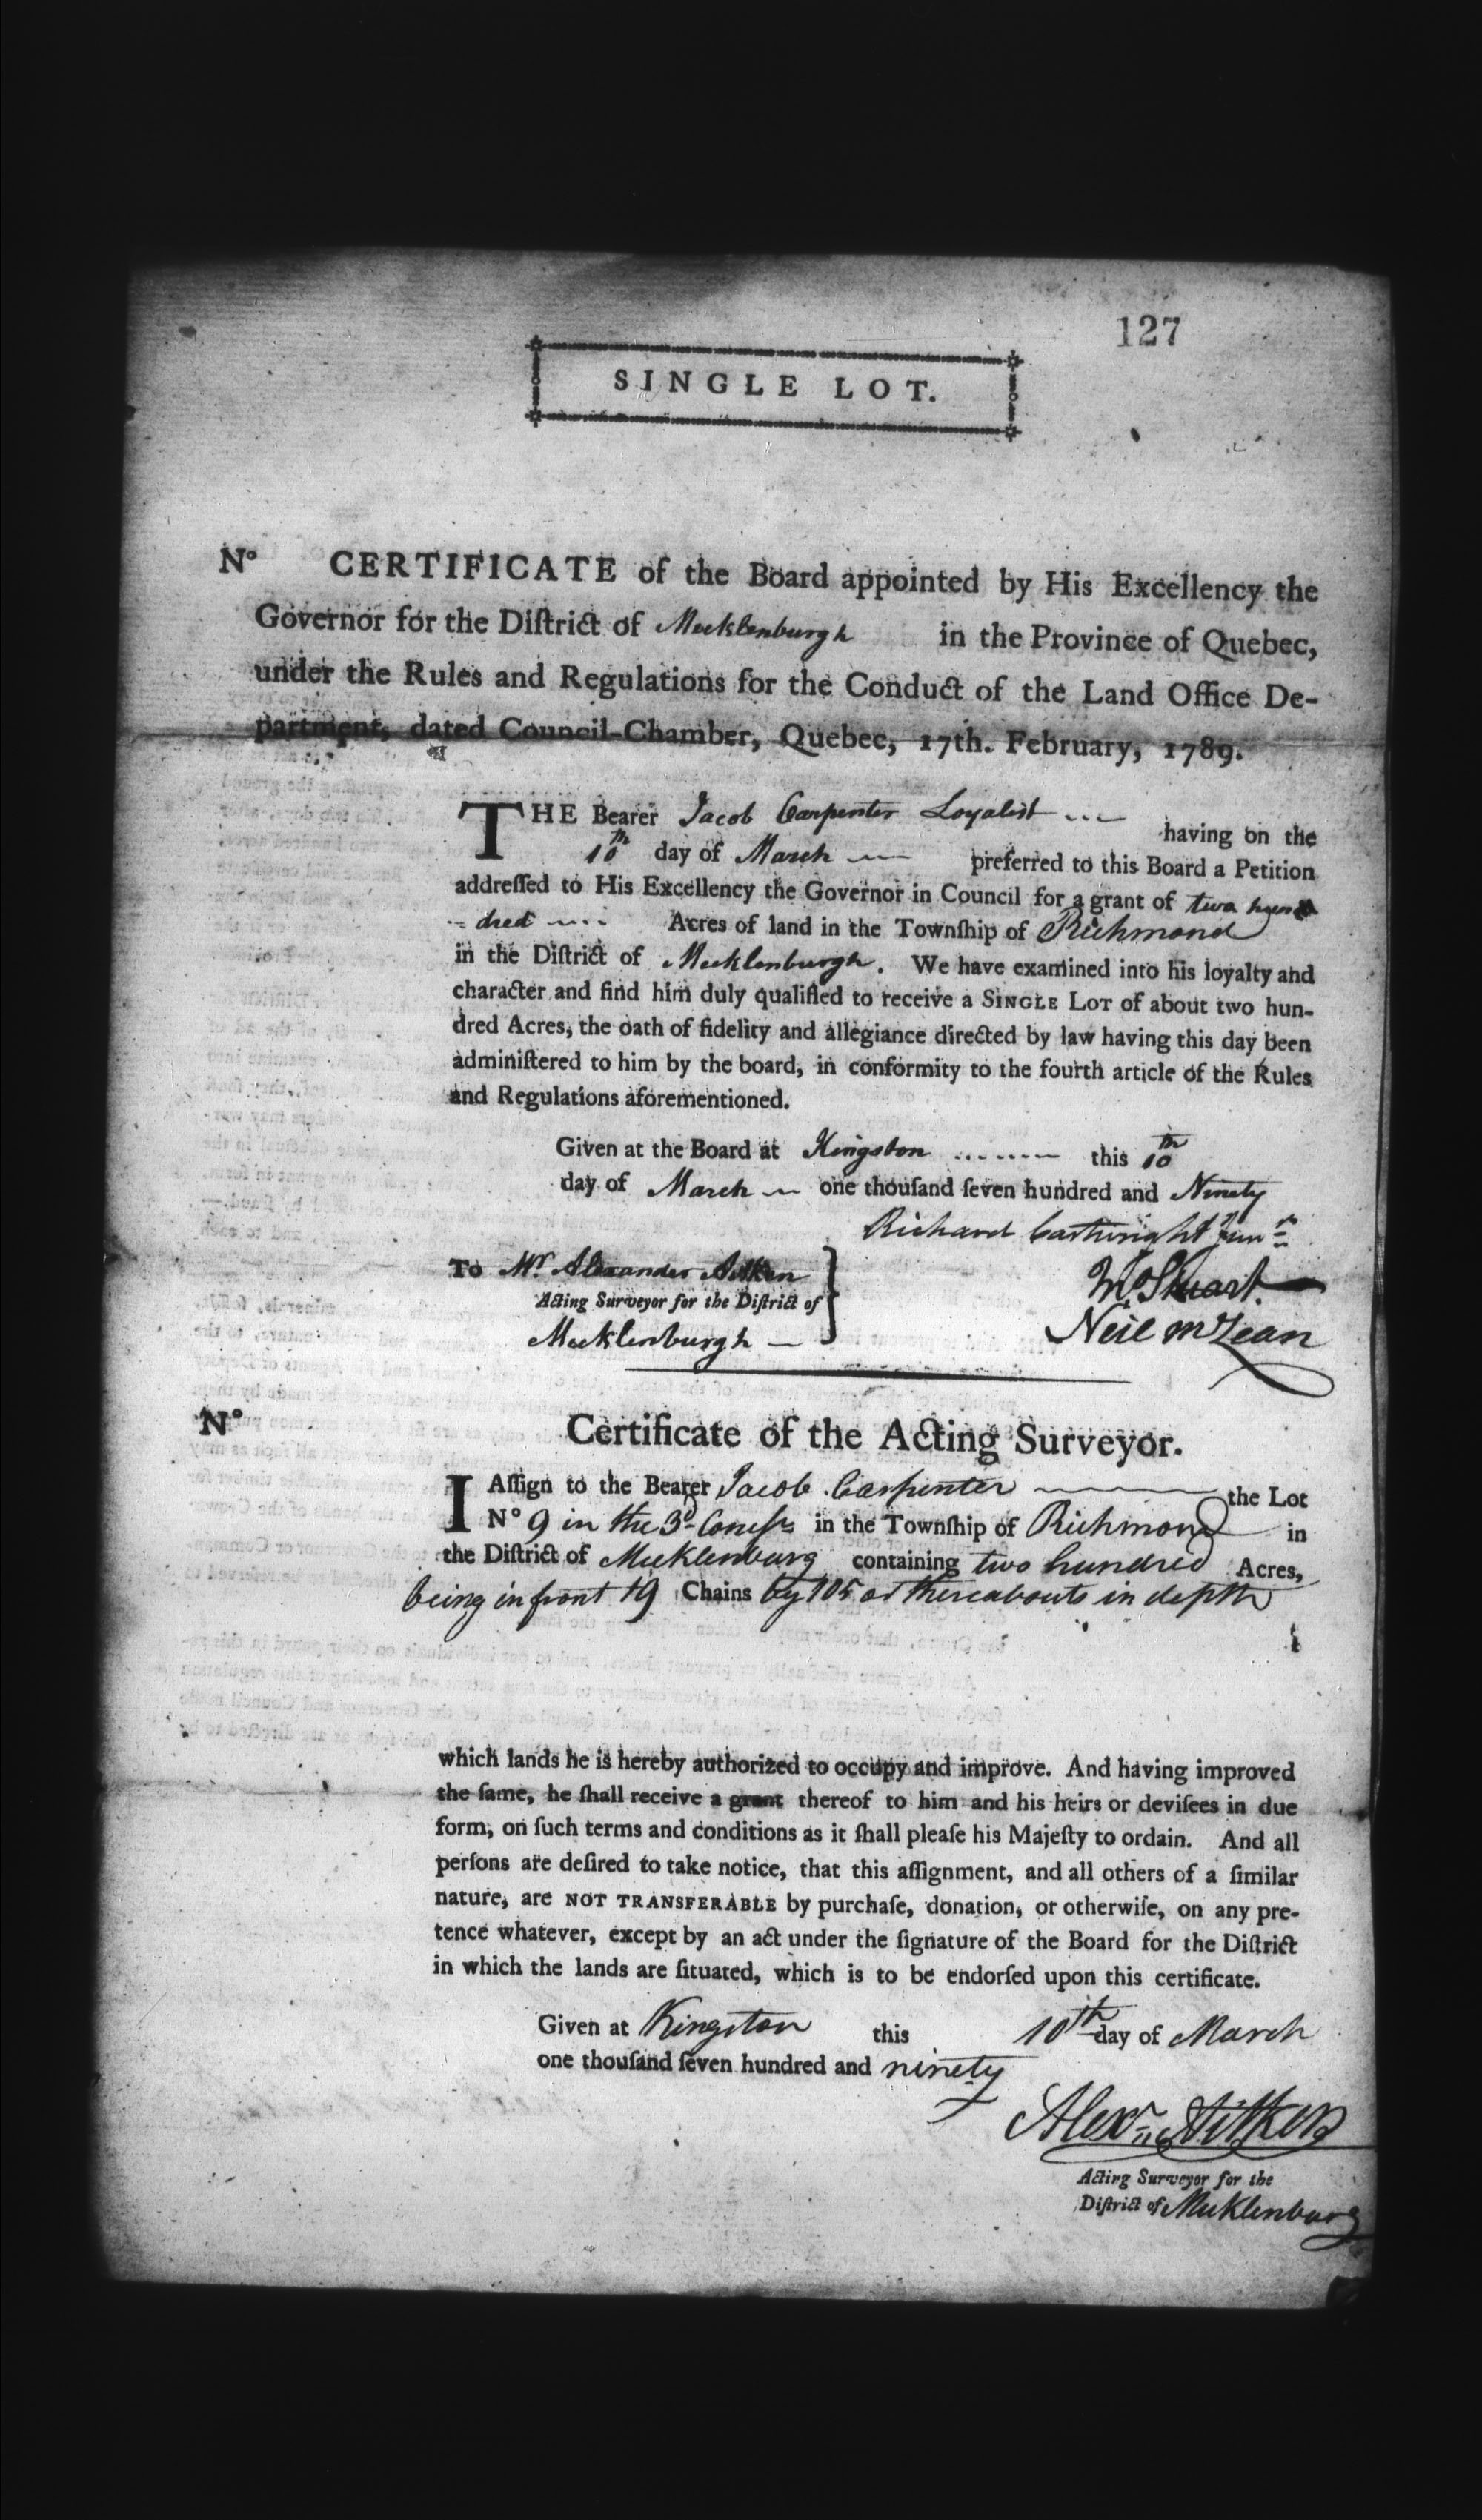 127
SINGLE LOT.
N° CERTIFICATE of the Board appointed by His Excellency the
Governor for the Diſtrict of Mecklenburgh in the Province of Quebec,
under the Rules and Regulations for the Conduct of the Land Office De-
partment, dated Council-Chamber, Quebec, 17th. February, 1789.
THE Bearer Jacob Carpenter Loyalist having on the
10th day of March preferred to this Board a Petition
addreſſed to His Excellency the Governor in Council for a grant of two hun
-dred Acres of land in the Townſhip of Richmond
in the Diſtrict of Mecklenburgh. We have examined into his loyalty and
character and find him duly qualified to receive a SINGLE LOT of about two hun-
dred Acres, the oath of fidelity and allegiance directed by law having this day been
adminiſtered to him by the board, in conformity to the fourth article of the Rules
and Regulations aforementioned.
Given at the Board at Kingston this 10th
day of March one thouſand ſeven hundred and Ninety
Richard Cartwright Junr
To Mr. Alexander Aitken
Acting Surveyor for the Diſtrict of
Mecklenburgh
Stuart.
Neil McLean
N° Certificate of the Acting Surveyor.
I Aſſign to the Bearer Jacob Carpenter the Lot
N° 9 in the 3d Conceſs in the Townſhip of Richmond in
the Diſtrict of Mecklenburg containing two hundred Acres,
being in front 19 Chains by 105 or thereabouts in depth
which lands he is hereby authorized to occupy and improve. And having improved
the ſame, he ſhall receive a grant thereof to him and his heirs or deviſees in due
form, on ſuch terms and conditions as it ſhall pleaſe his Majeſty to ordain. And all
perſons are deſired to take notice, that this aſſignment, and all others of a ſimilar
nature, are NOT TRANSFERABLE by purchaſe, donation, or otherwiſe, on any pre-
tence whatever, except by an act under the ſignature of the Board for the Diſtrict
in which the lands are ſituated, which is to be endorſed upon this certificate.
Given at Kingston this 10th day of March
one thouſand ſeven hundred and ninety
Alexr. Aitken
Acting Surveyor for the
Diſtrict of Mecklenburg